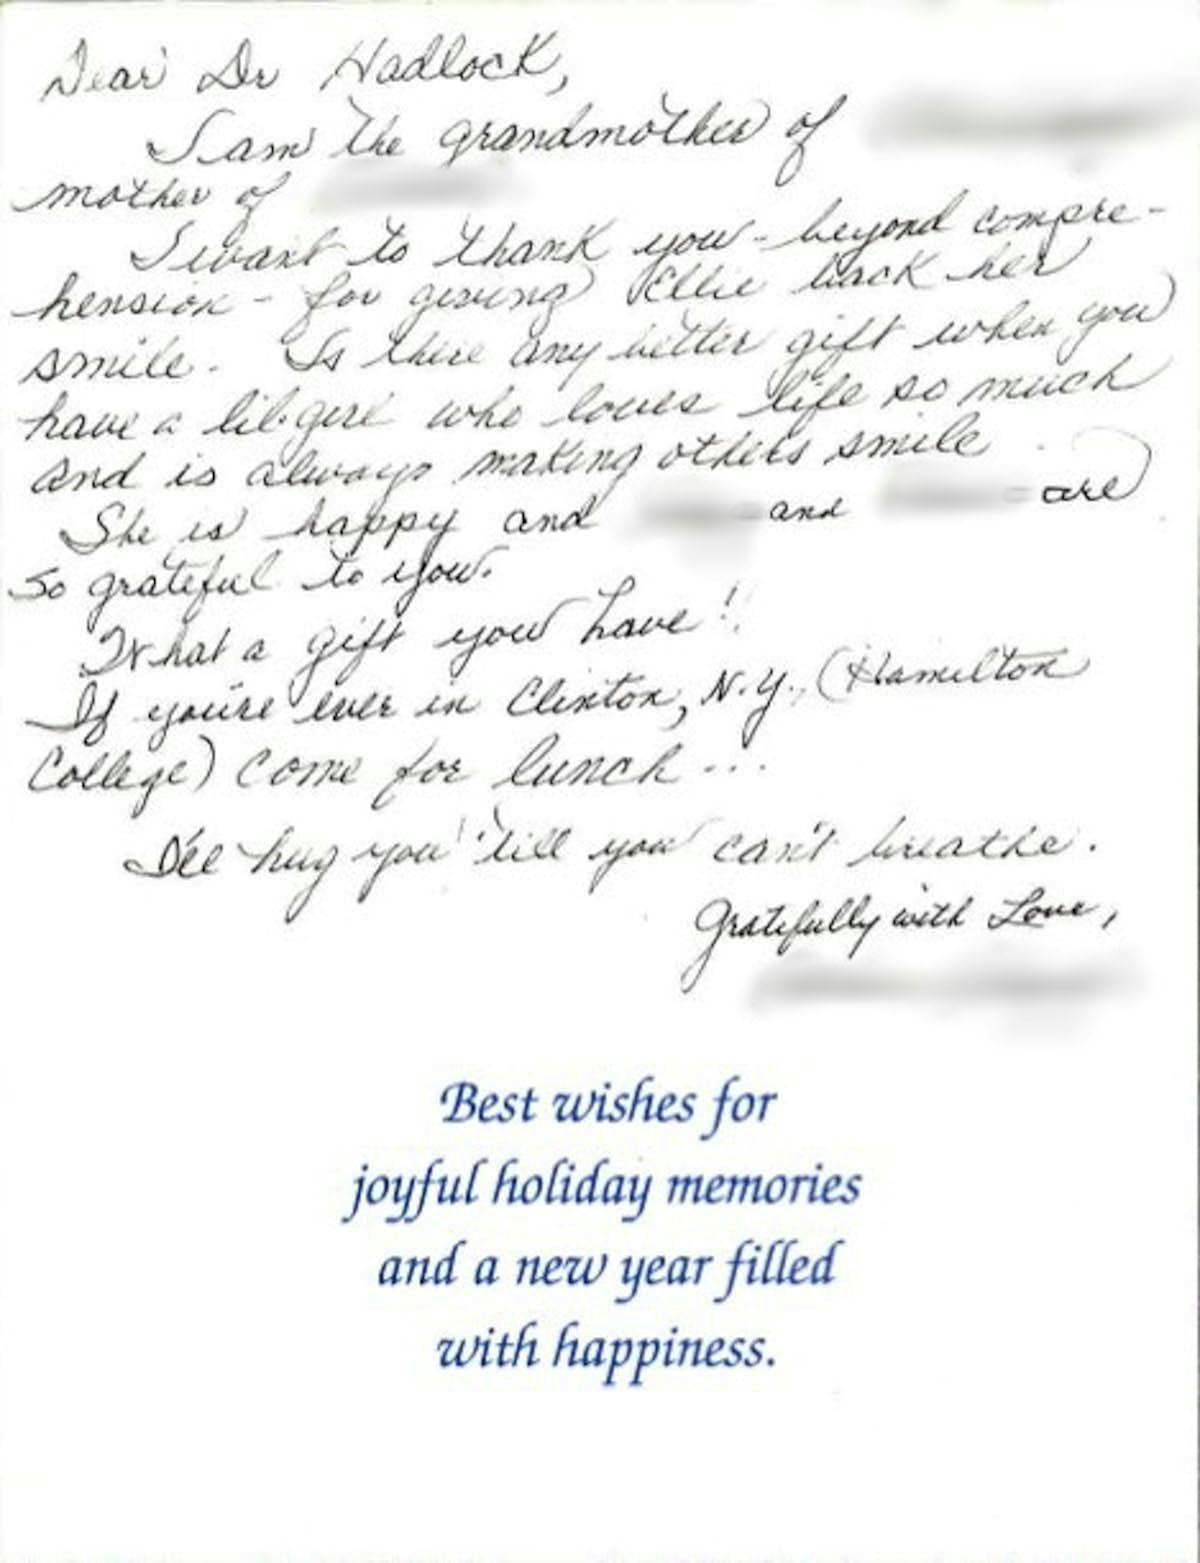 Dear Dr Hadlock,
I am the grandmother of
mother of
I want to thank you - beyond compre-
hension - for giving Ellie back her
smile. Is there any better gift when you
have a lil' girl who loves life so much
and is always making others smile
She is happy and and are
so grateful to you.
What a gift you have!
If you're ever in Clinton, N.Y., (Hamilton
College) come for lunch ...
I'll hug you 'till you can't breathe.
Gratefully with Love,
Best wishes for
joyful holiday memories
and a new year filled
with happiness.